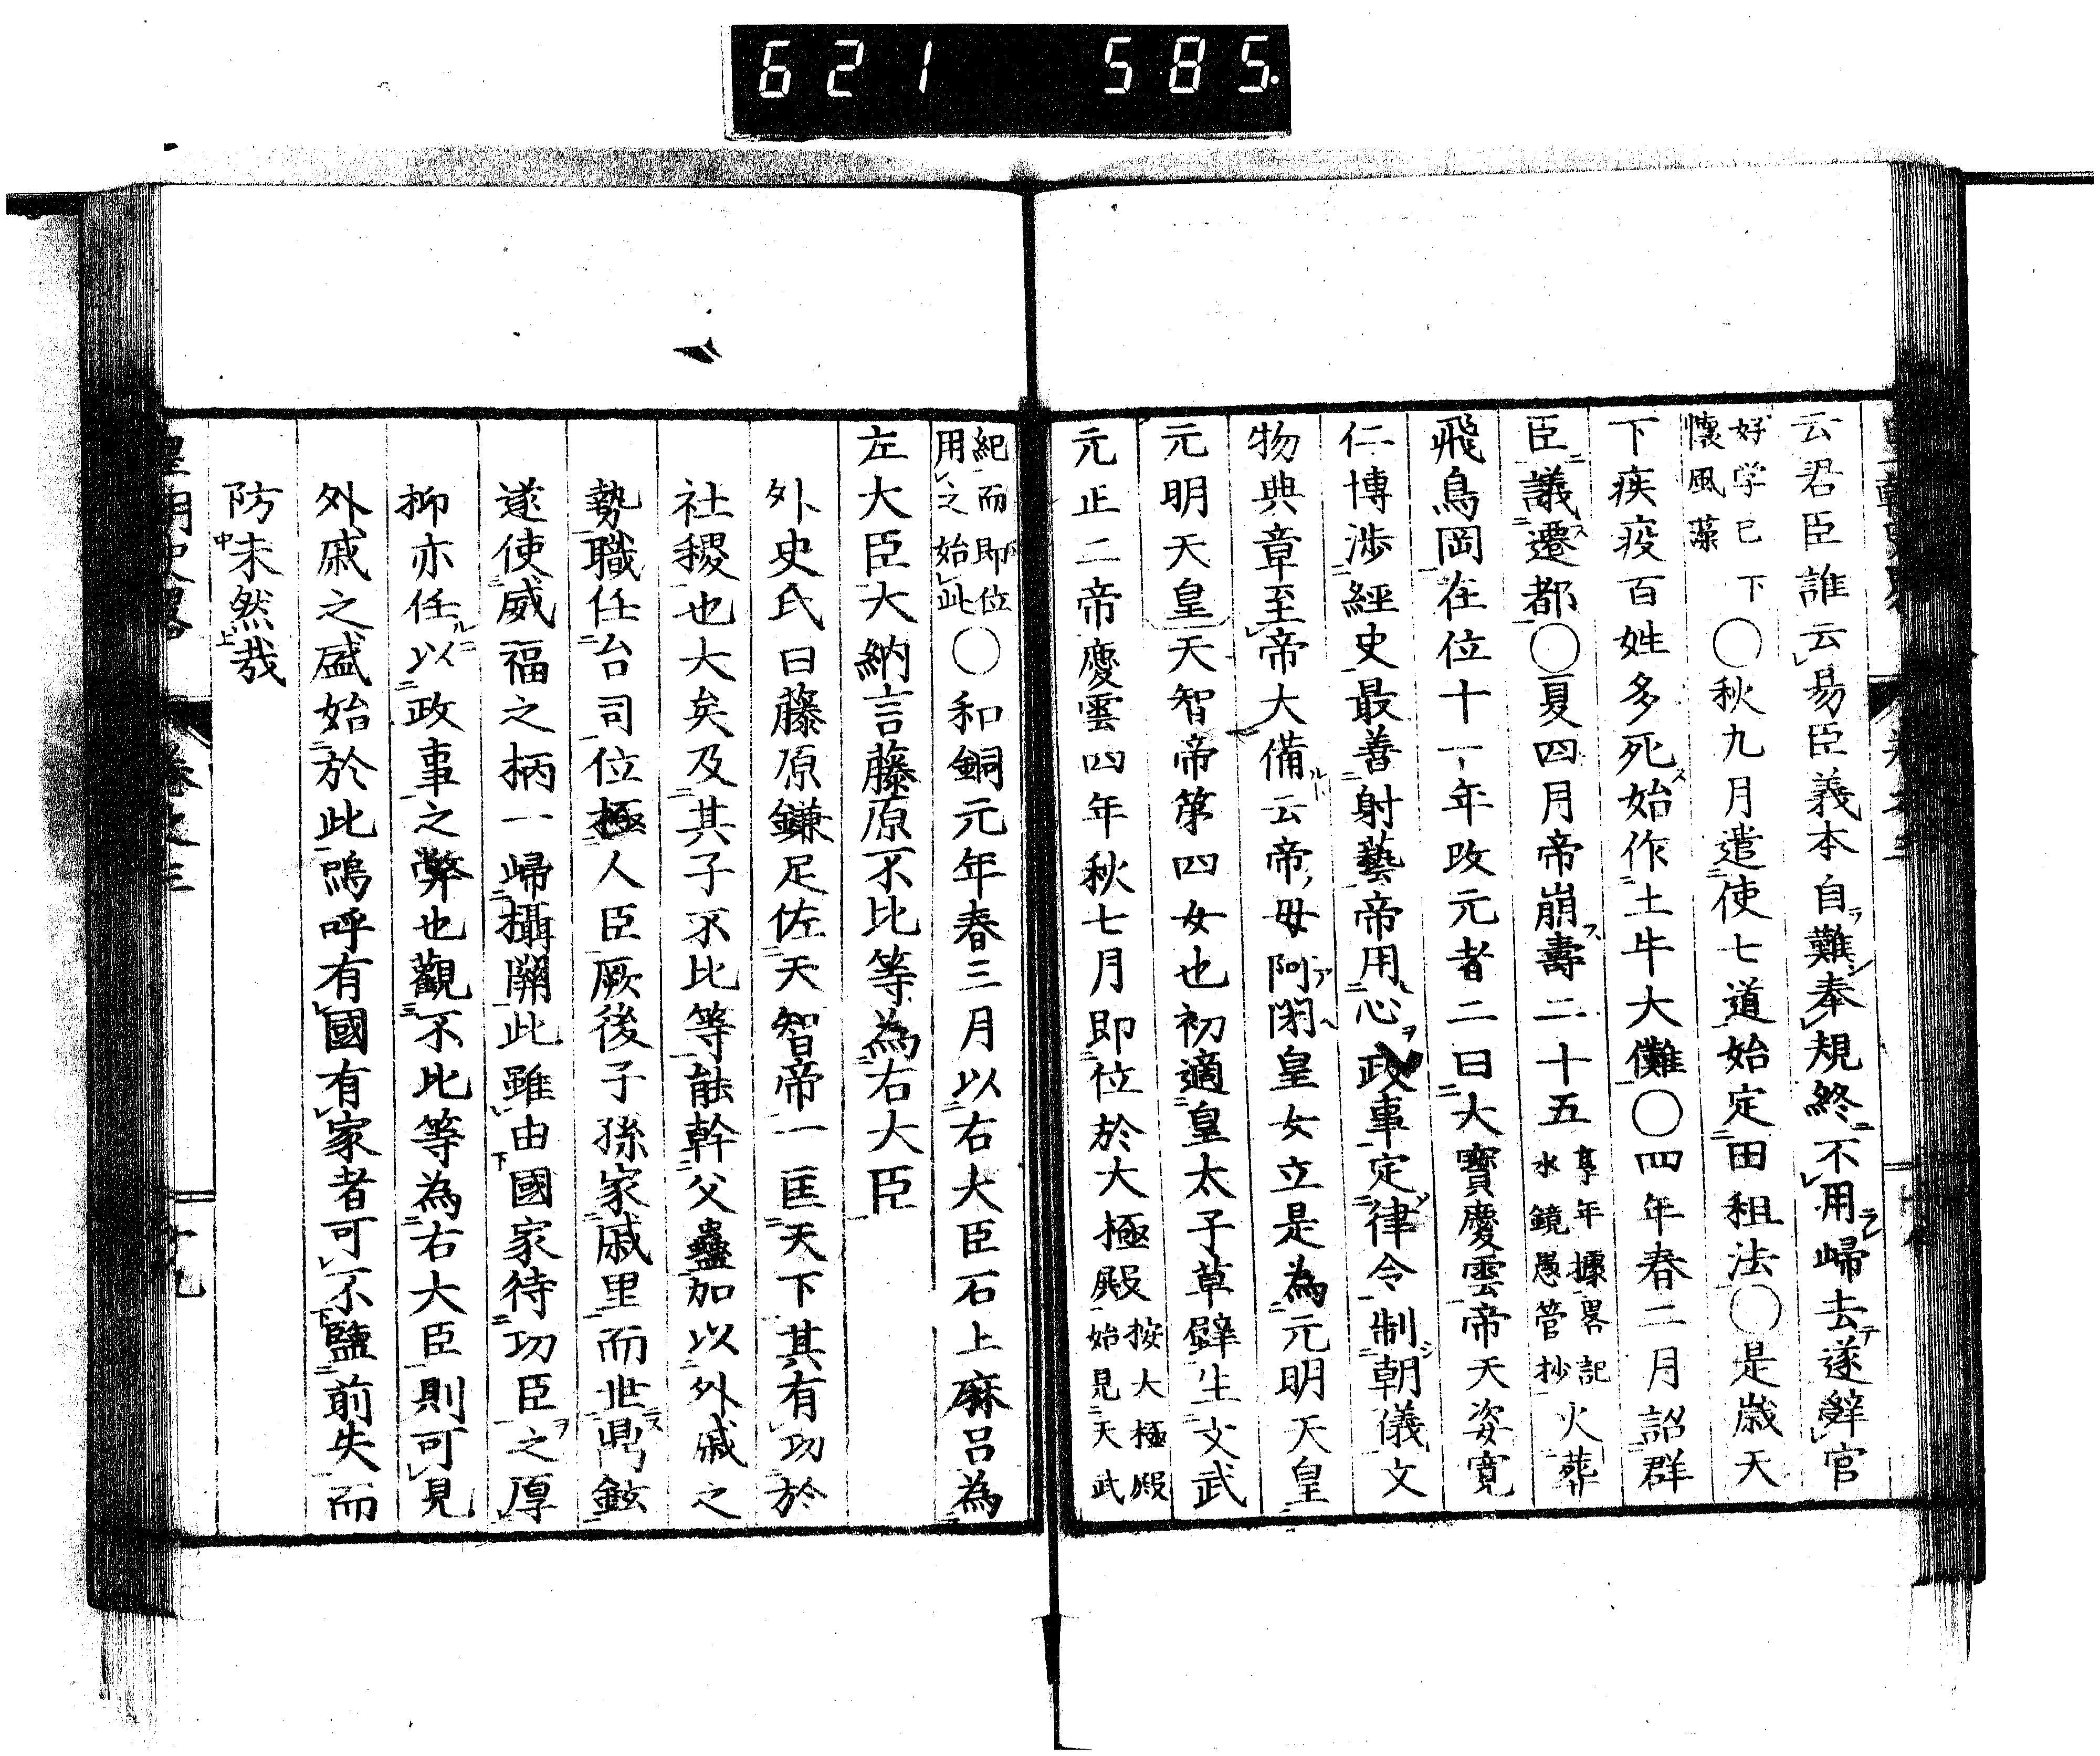 621 585.
云君臣誰云易臣義本自難奉規終不用歸去遂辭官
好学已下
懷風藻
〇秋九月遣使七道始定田租法〇是歲天
下疾疫百姓多死始作土牛大儺〇四年春二月詔群
臣議遷都〇夏四月帝崩壽二十五
享年據畧記
水鏡愚管抄
火葬
飛鳥岡在位十一年改元者二曰大寶慶雲帝天姿寬
仁博涉經史最善射藝帝用心政事定律令制朝儀文
物典章至帝大備云帝母阿閇皇女立是為元明天皇
元明天皇天智帝第四女也初適皇太子草壁生文武
元正二帝慶雲四年秋七月即位於大極殿
按大極殿
始見天武
紀而即位
用之始此
〇和銅元年春三月以右大臣石上麻呂為
左大臣大納言藤原不比等為右大臣
外史氏曰藤原鎌足佐天智帝一匡天下其有功於
社稷也大矣及其子不比等能幹父蠱加以外戚之
勢職任台司位極人臣厥後子孫家戚里而世鼎鉉
遂使威福之柄一歸攝關此雖由國家待功臣之厚
抑亦任以政事之弊也觀不比等為右大臣則可見
外戚之盛始於此嗚呼有國有家者可不鹽前失而
防未然哉
皇朝史畧 卷之三 十九